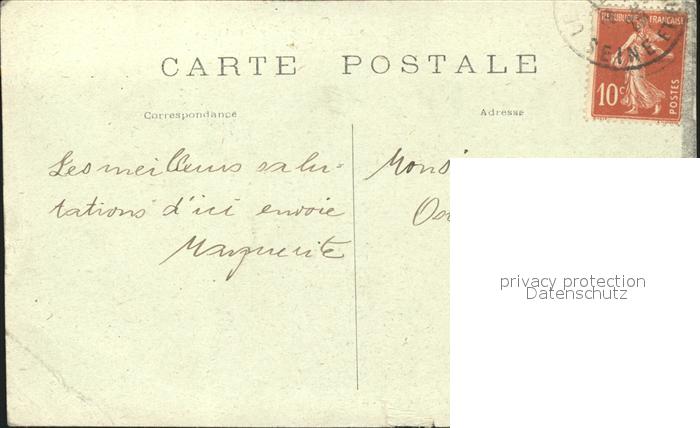 CARTE POSTALE
Correspondance
Adresse
REPUBLIQUE FRANÇAISE
10c
POSTES
SEINE ET
Les meilleurs salu-
tations d'ici envoie
Marguerite
privacy protection
Datenschutz